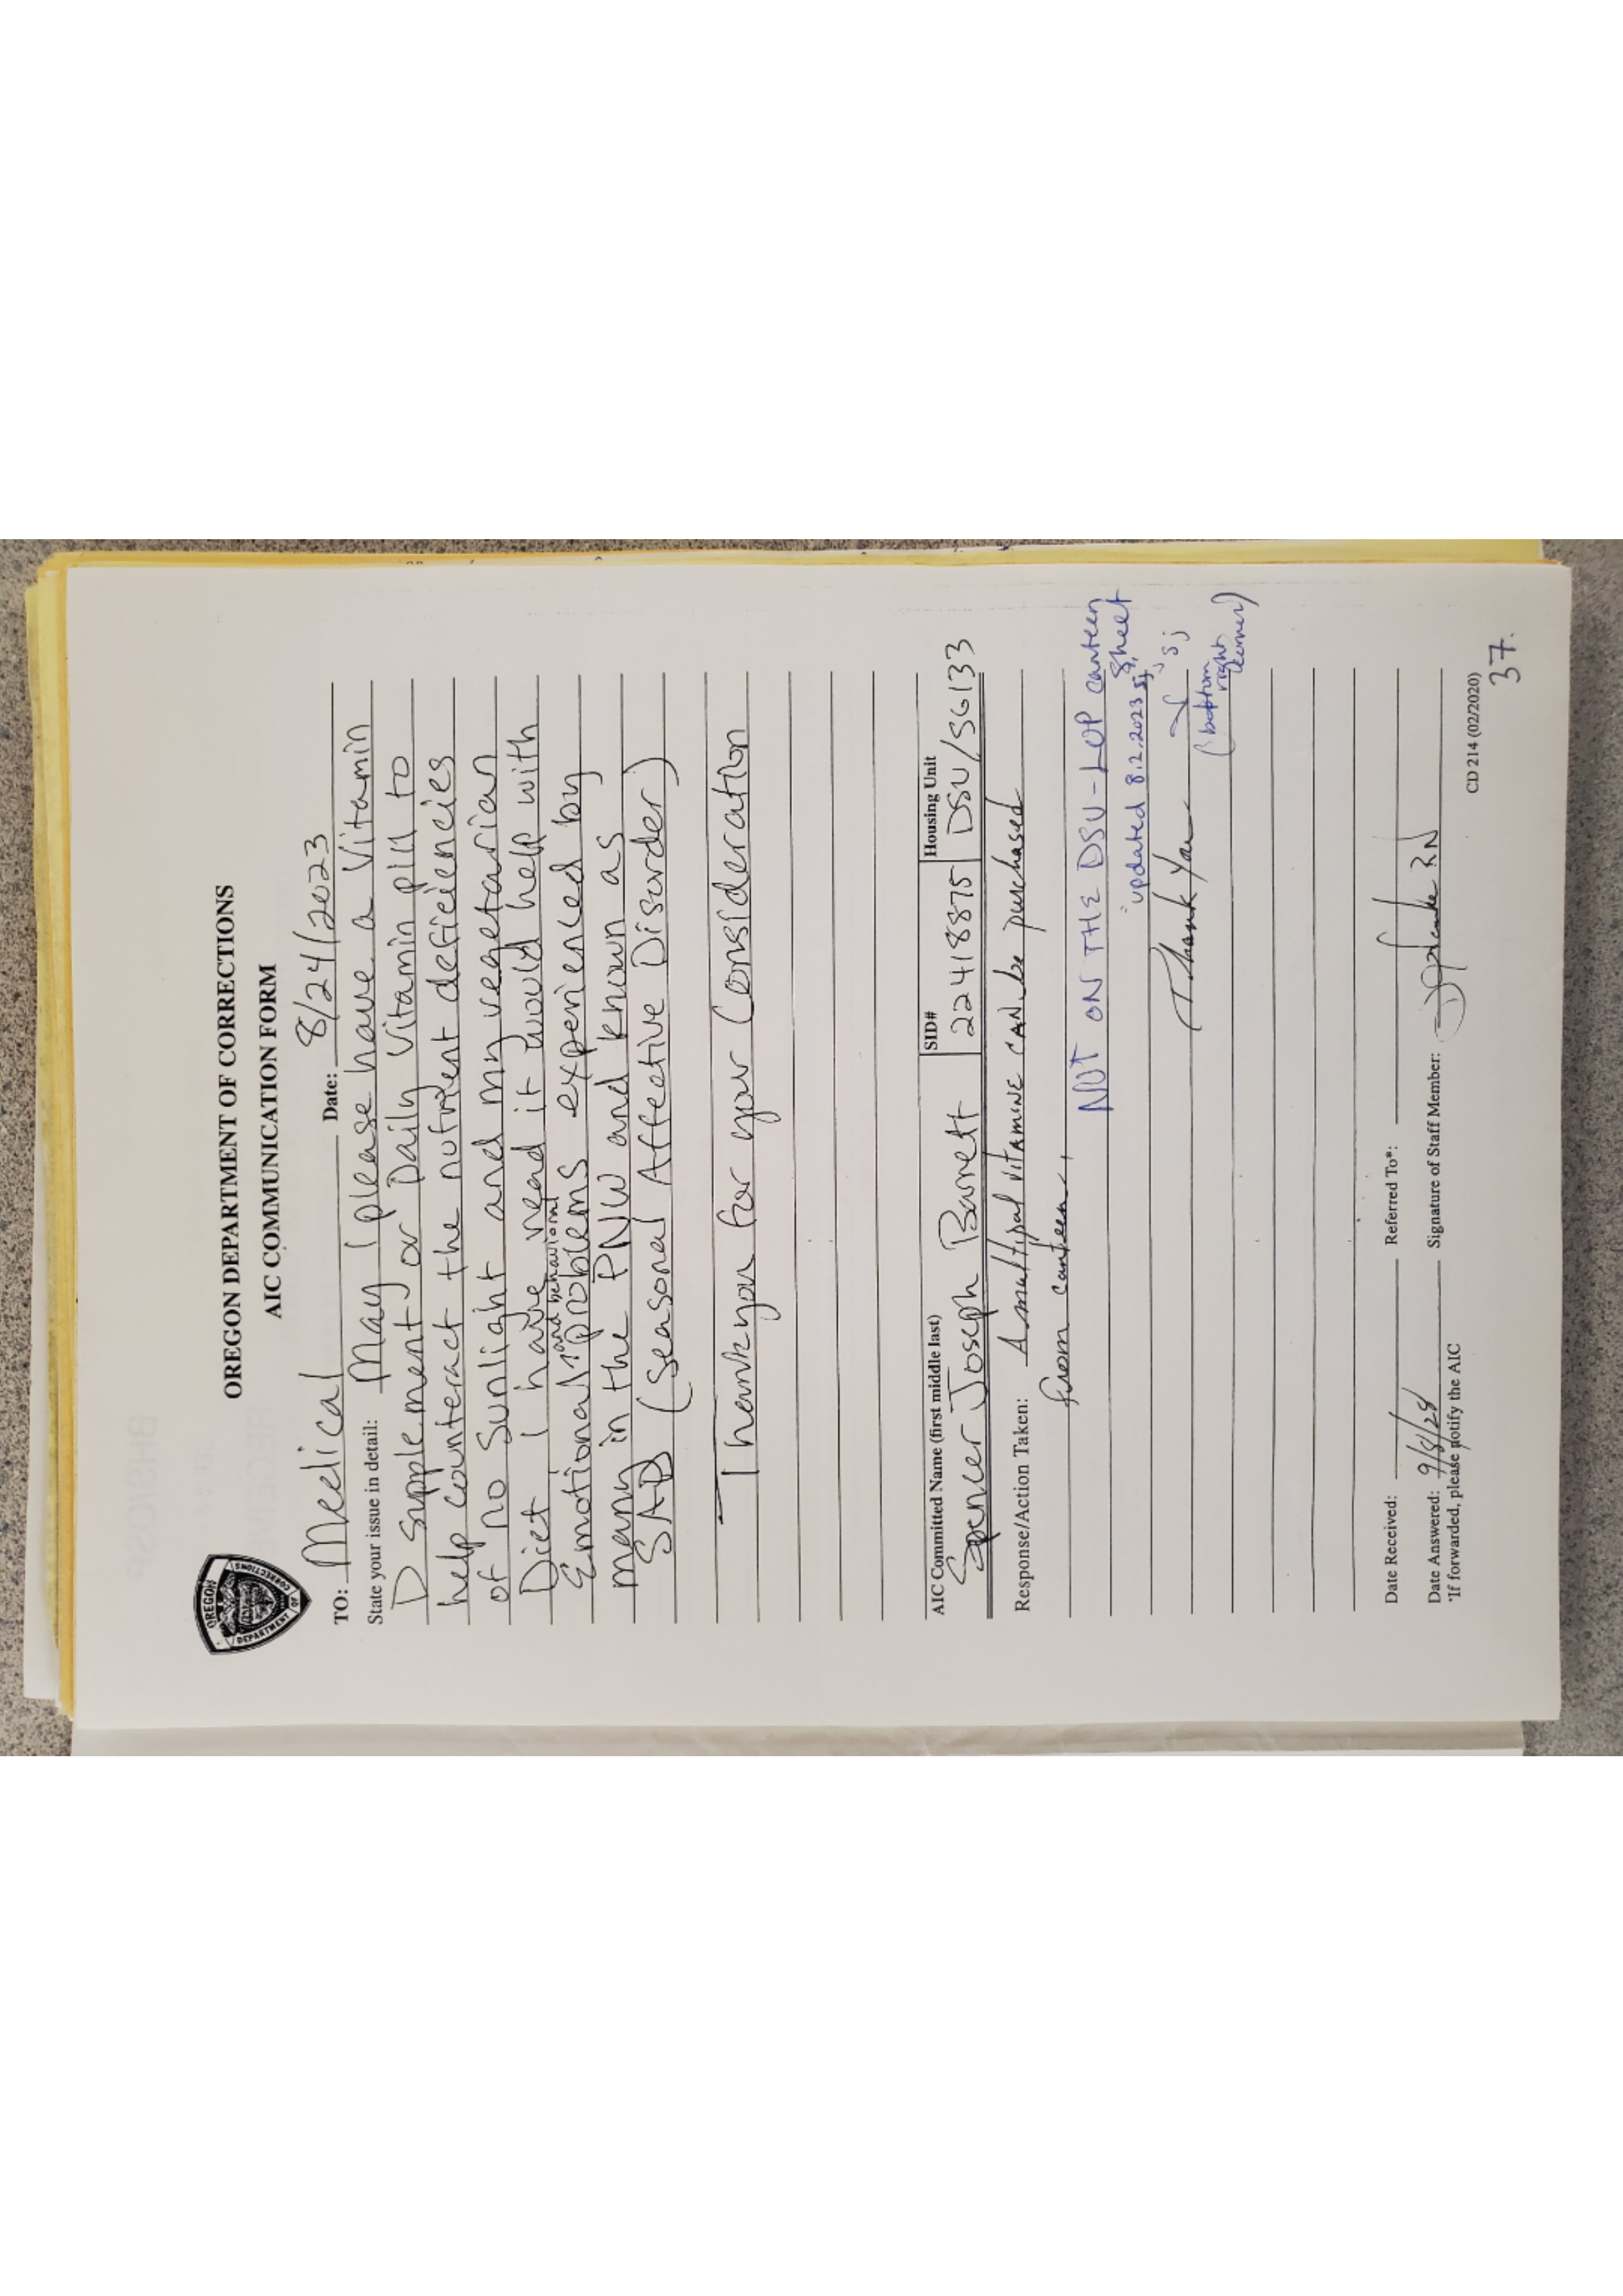 OREGON DEPARTMENT OF CORRECTIONS
AIC COMMUNICATION FORM
OREGON
DEPARTMENT OF
CORRECTIONS
TO: Medical Date: 8/24/2023
State your issue in detail: May I please have a Vitamin
D supplement or Daily Vitamin pill to
help counteract the nutrient deficiencies
of no Sunlight and my vegetarian
Diet I have read it would help with
and behavioral
Emotional problems experienced by
many in the PNW and known as
SAD (Seasonal Affective Disorder)
Thankyou for your Consideration
AIC Committed Name (first middle last) SID# Housing Unit
Spencer Joseph Barnett 22418875 DSU/SG133
Response/Action Taken: A multipal vitamine CAN be purchased
from canteen.
NOT ON THE DSU-LOP canteen
sheet
updated 8.2.2023 sj
Thank You
sj
(bottom
right
corner)
Date Received: Referred To*:
Date Answered: 9/8/28 Signature of Staff Member: RN
*If forwarded, please notify the AIC
CD 214 (02/2020)
37.